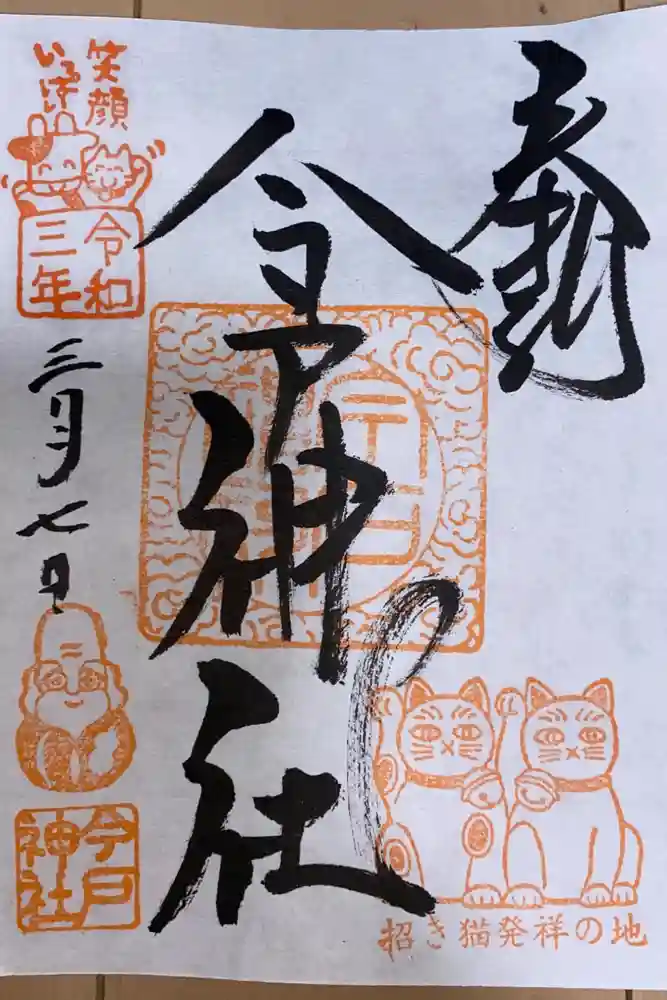 奉拝
今戸神社
笑顔
いっぱい
令和
三年
三月七日
今戸
神社
招き猫発祥の地